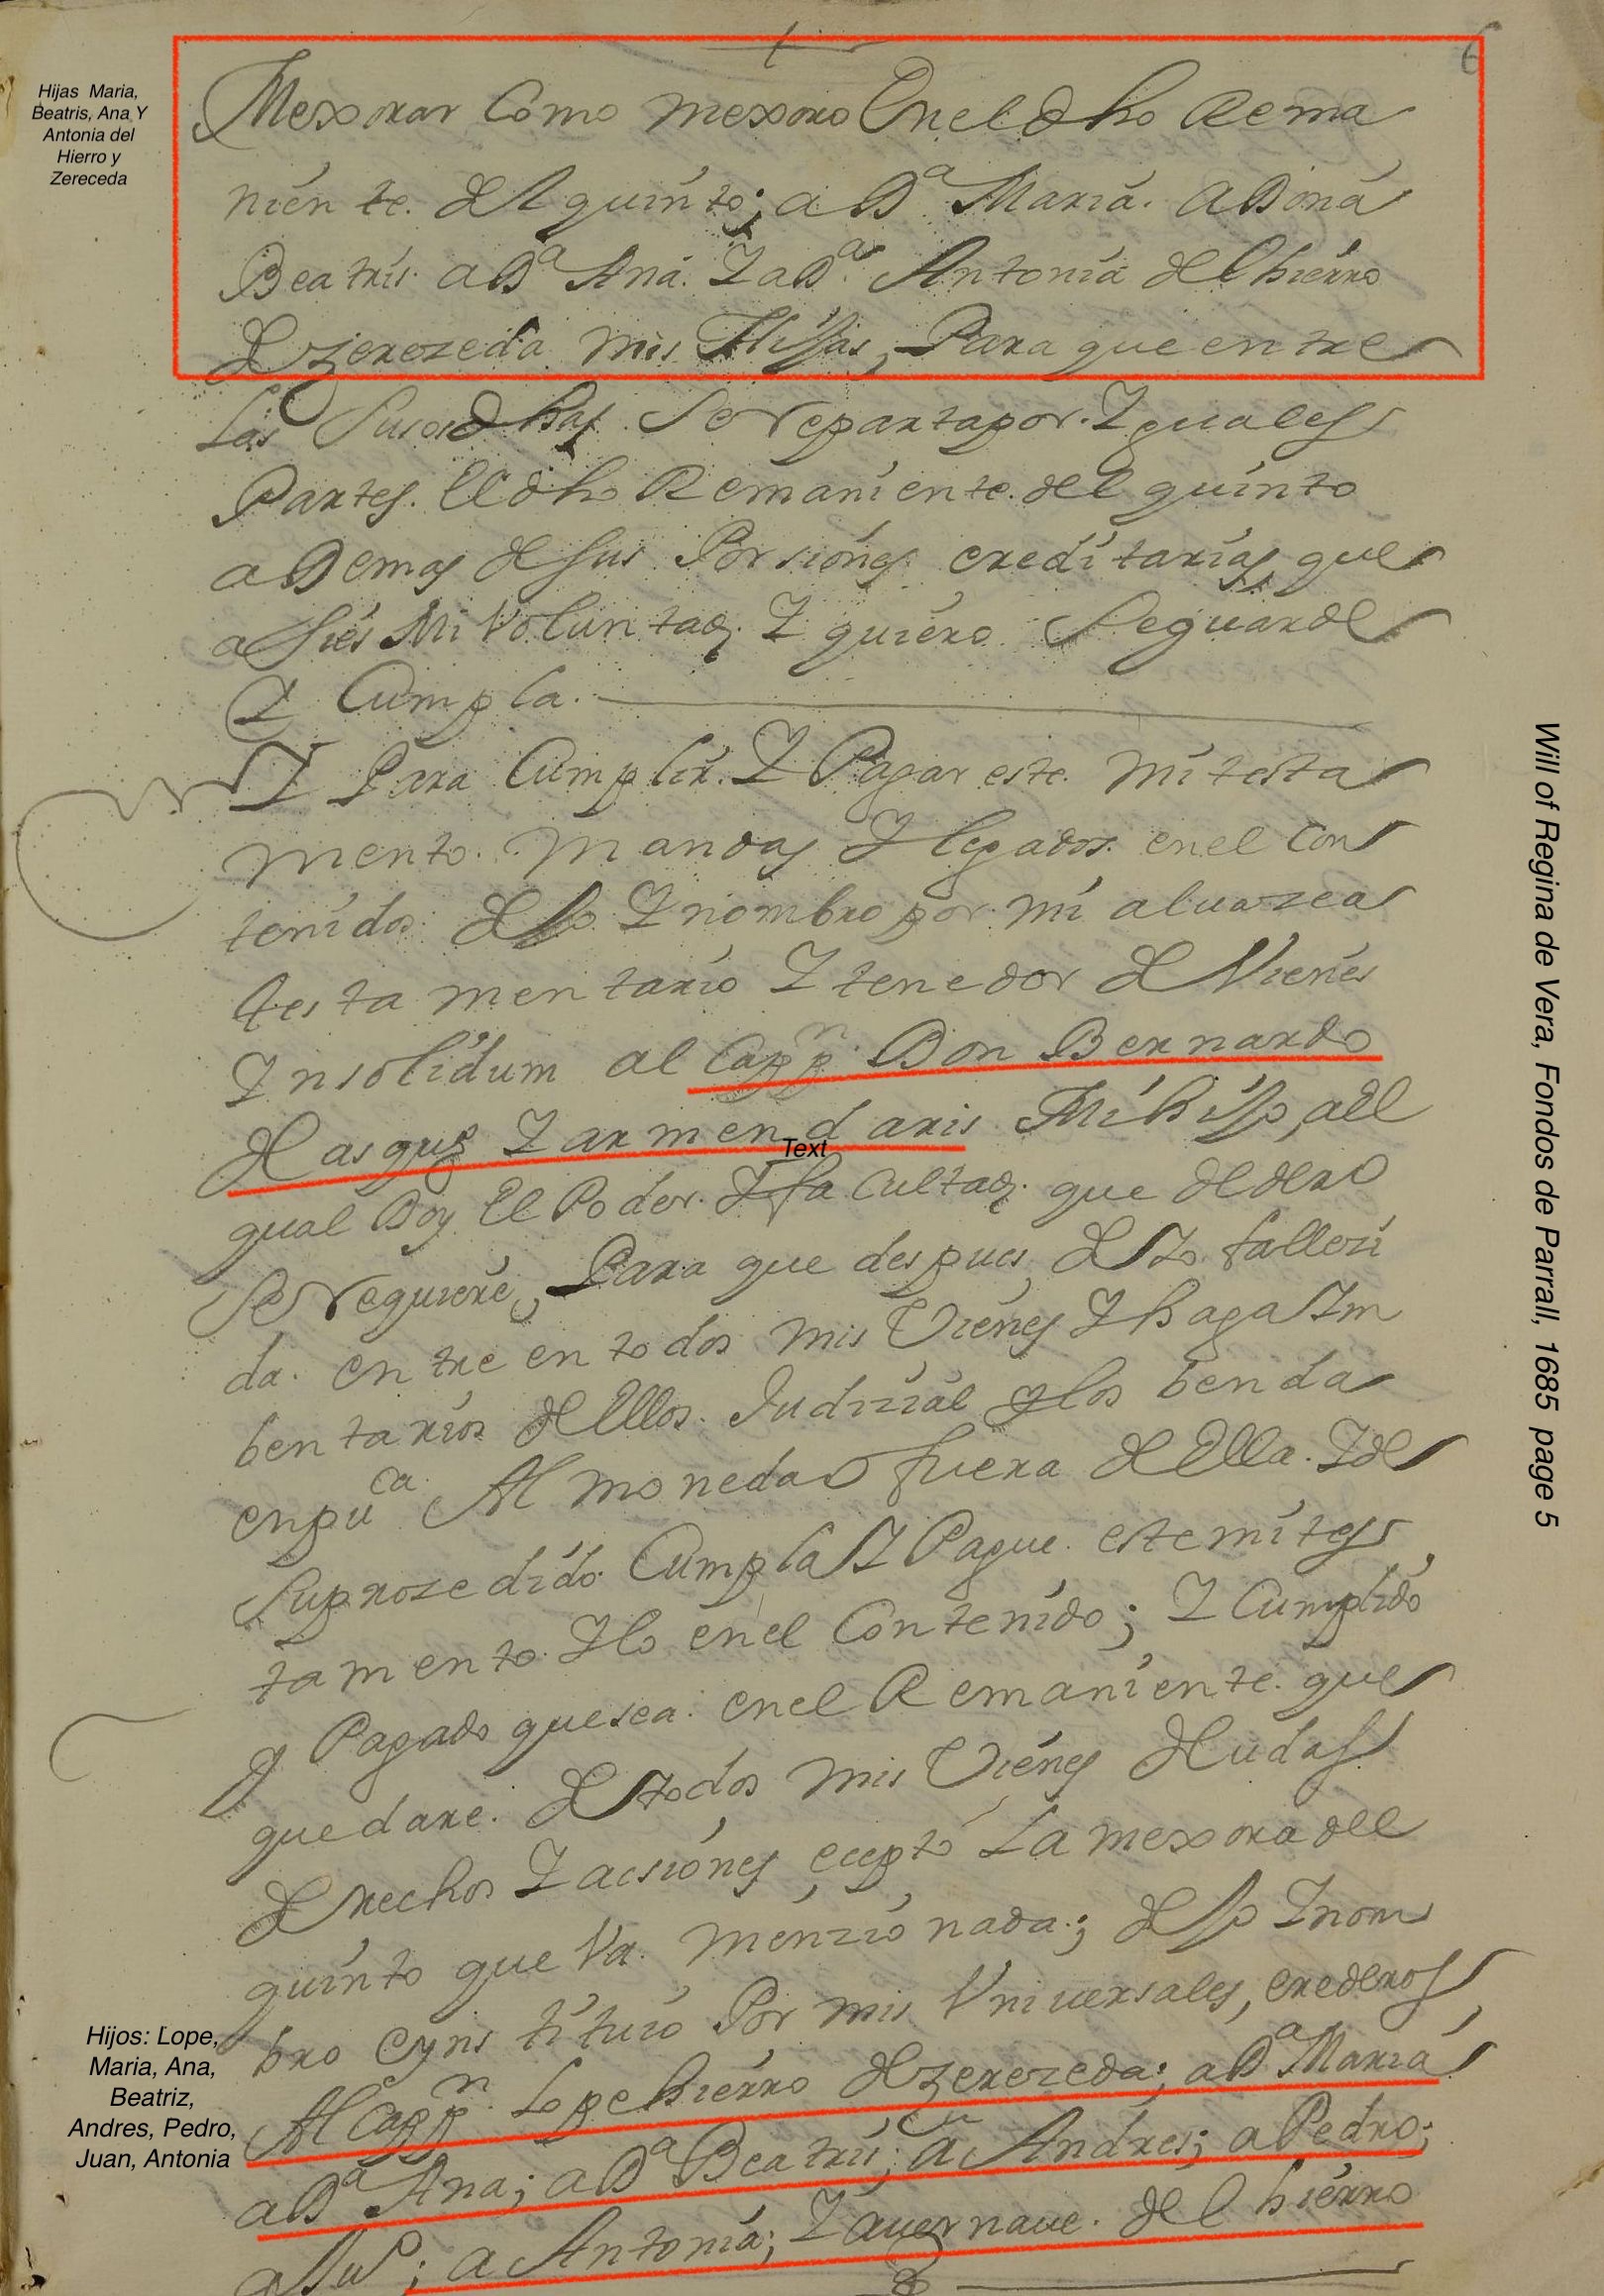 6
Hijas Maria,
Beatris, Ana Y
Antonia del
Hierro y
Zereceda
Mexorar Como mexoro En el dho Rema
niente. del quinto; a Da Maria. a Dona
Beatris a Da Ana. Y a Da Antonia del hierro
de zerezeda mis Hijas, Para que entre
Las Susodhas Se reparta por. Yguales
Partes. El dho Remaniente. del quinto
a Demas de sus Porsiones ereditarias que
asi es Mi Voluntad. Y quiero Se guarde
Y Cumpla.
Y Para Cumplir. Y Pagar este. mi testa
mento. mandas Y legados. en el Con
tenidos dejo Y nombro por mi aluazea
testamentario Y tenedor de Vienes
Ynsolidum al Cappn. Don Bernardo
de as que Y armendaris Mi hijo, al
qual Doy El Poder. Y facultad. que de dero
Se requiere, Para que despues de Yo falleci
da. entre en todos mis Vienes Y haga Ym
bentarios de Ellos. Judizial Y los benda
en puca Almoneda O fuera de Ella. Y de
Su prozedido Cumpla Y Pague. este mi tes
tamento. Y lo en el Contenido; Y Cumplido
Y Pagado que sea. en el Remaniente. que
quedare. de todos mis Vienes deudas
derechos Y acsiones, ecepto La mexora del
quinto que Va. menzionada.; dejo Y nom
bro e yns tituio Por mis Vniuersales, erederos
Al Cappn. Lope hierro de zerezeda; a Da Maria
a Da Ana; a Da Beatris; a Andres; a Pedro;
a Juo; a Antonia; Y a uer naue. del hierro
Text
Hijos: Lope,
Maria, Ana,
Beatriz,
Andres, Pedro,
Juan, Antonia
Will of Regina de Vera, Fondos de Parrall, 1685 page 5